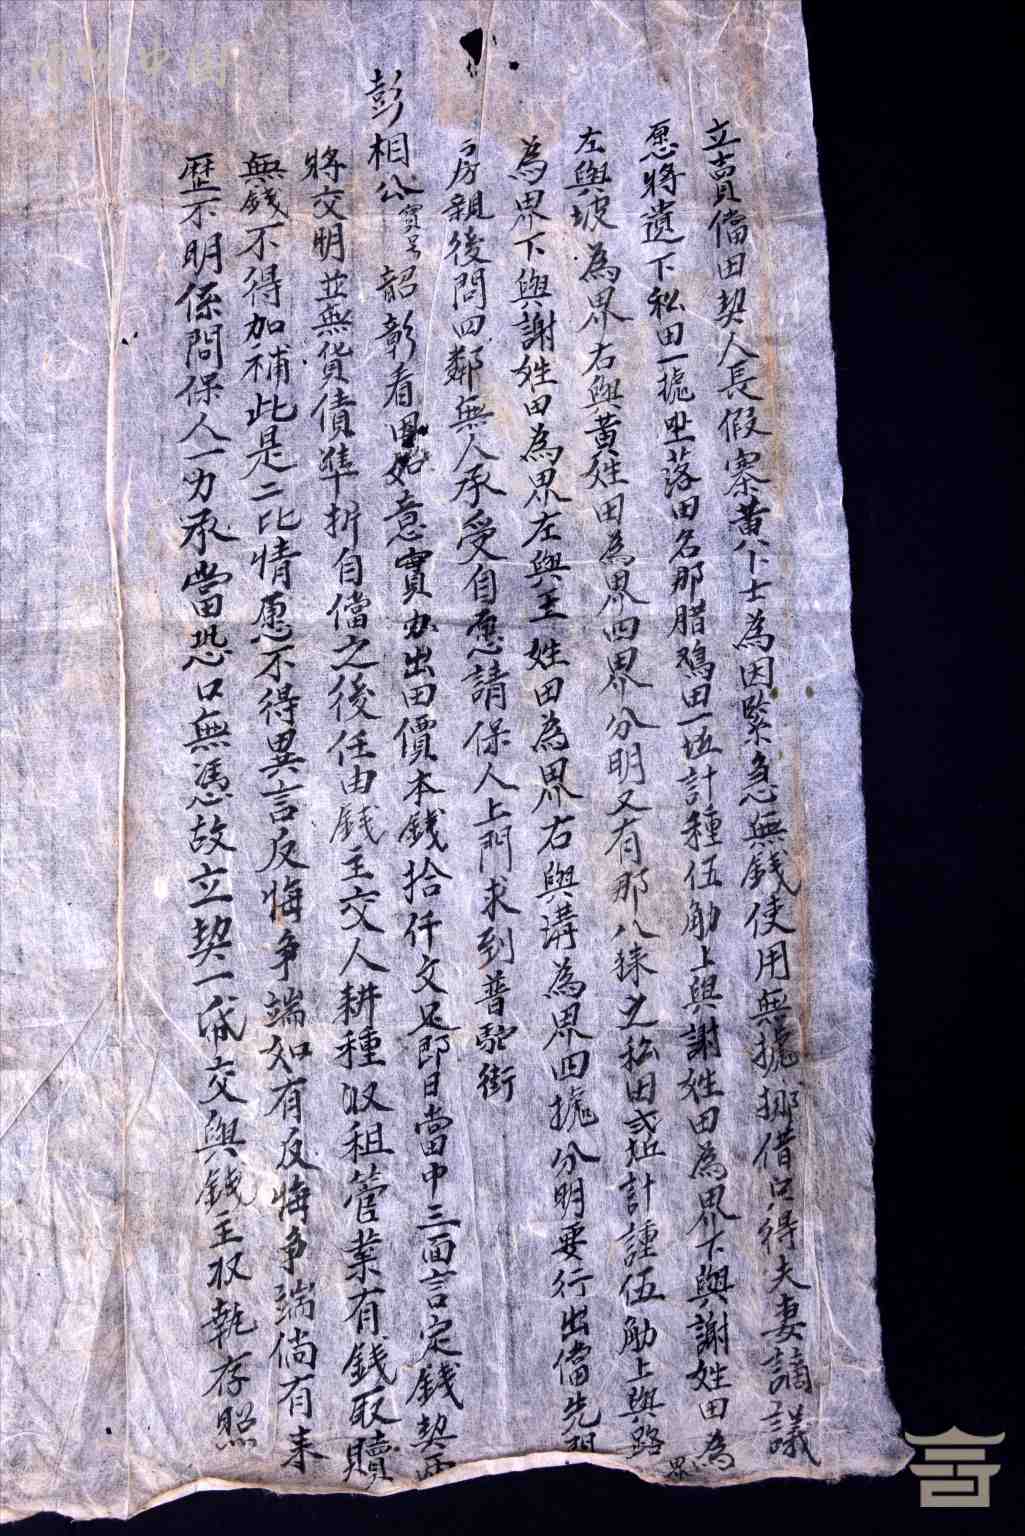 立賣當田契人長假寨黃卞士為因緊急無錢使用無擄挪借只得夫妻謫議
愿將遺下私田一擄坐落田名那腊鴉田一坵計種伍觔上與謝姓田為界下與謝姓田為界
左與坡為界右與黃姓田為界四界分明又有那八練之私田貳坵計種伍觔上與路
為界下與謝姓田為界左與王姓田為界右與溝為界四擄分明要行出儅先問
房親後問四鄰無人承受自愿請保人上門求到普駝街
彭相公寶号韶彰看田如意實办出田價本錢拾仟文足即日當中三面言定錢契兩
將交明並無貨債準折自儅之後任由錢主交人耕種收租管業有錢取贖
無錢不得加補此是二比情愿不得異言反悔爭端如有反悔爭端倘有來
歷不明係問保人一力承當恐口無憑故立契一紙交與錢主收執存照
博物中國